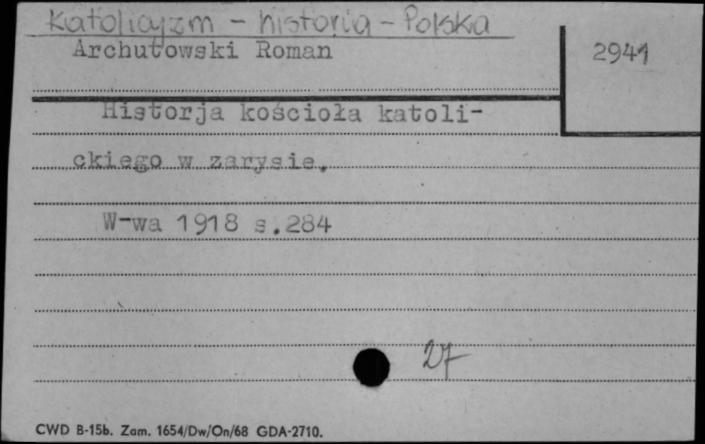 Katolicyzm - historia - Polska
Archutowski Roman
2941
Historja kościoła katoli-
ckiego w zarysie.
W-wa 1918 s.284
27
CWD B-15b. Zam. 1654/Dw/On/68 GDA-2710.